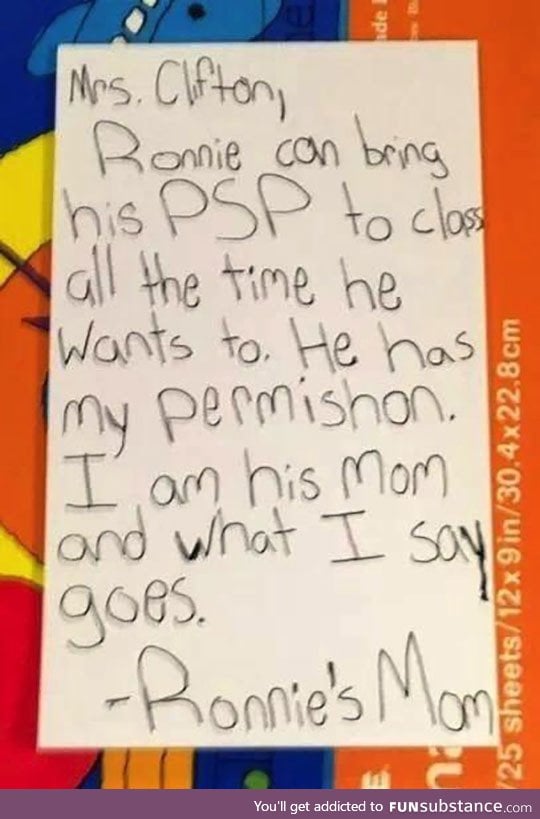 Mrs. Clifton,
Ronnie can bring
his PSP to class
all the time he
wants to. He has
my permishon.
I am his Mom
and what I say
goes.
-Ronnie's Mom
25 sheets/12x9in/30.4x22.8cm
You'll get addicted to FUNsubstance.com